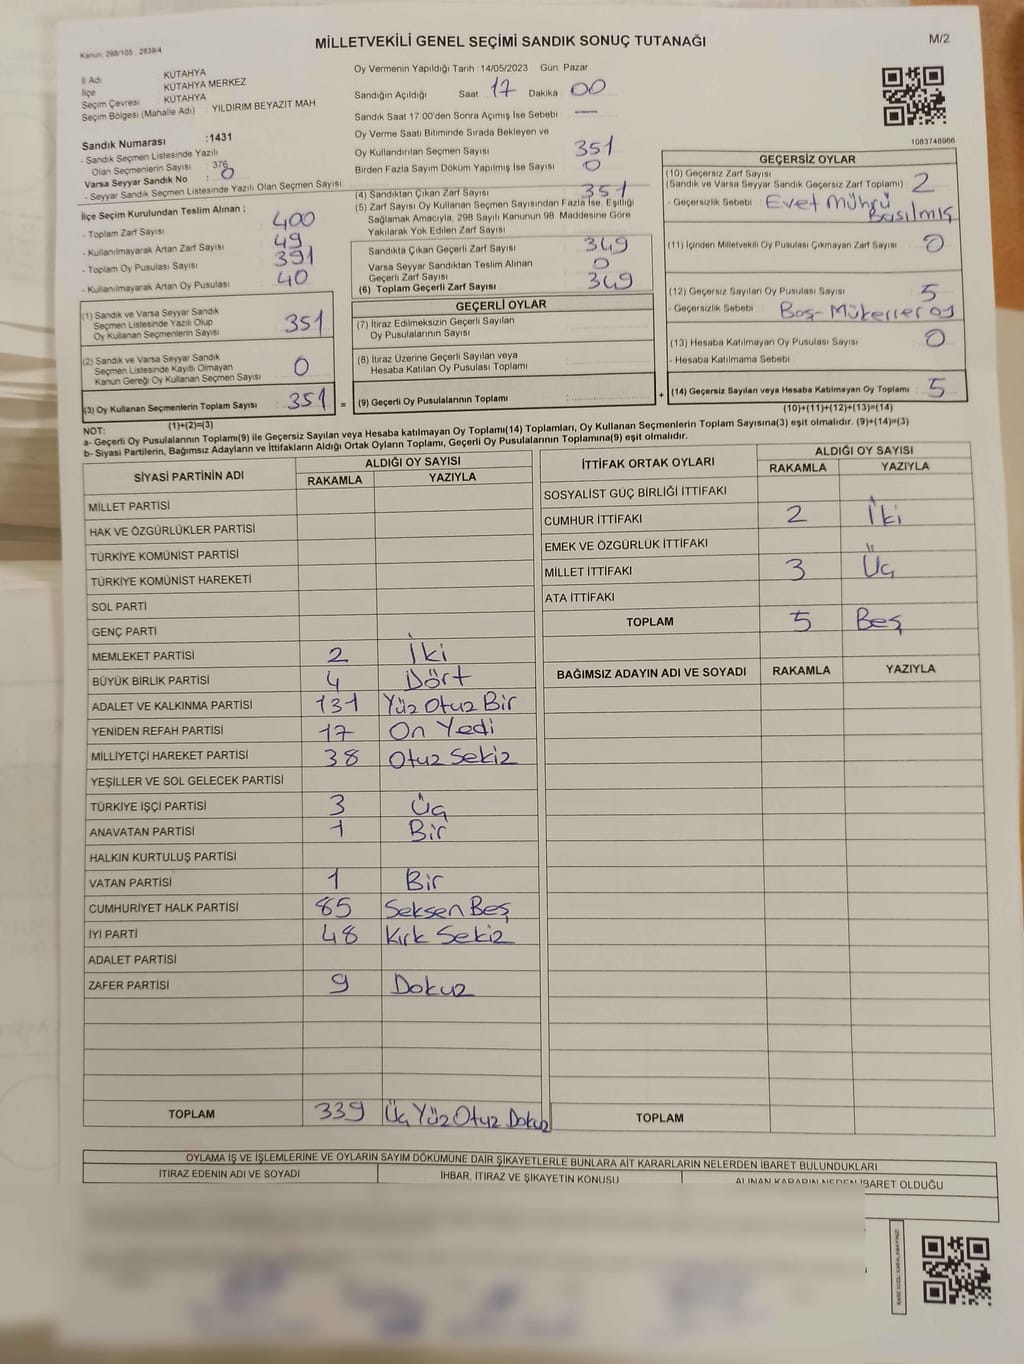 Kanun: 298/105 , 2839/4
MİLLETVEKİLİ GENEL SEÇİMİ SANDIK SONUÇ TUTANAĞI
M/2
İl Adı : KÜTAHYA
İlçe : KÜTAHYA MERKEZ
Seçim Çevresi : KÜTAHYA
Seçim Bölgesi (Mahalle Adı) : YILDIRIM BEYAZIT MAH
Sandık Numarası :1431
- Sandık Seçmen Listesinde Yazılı
Olan Seçmenlerin Sayısı : 376
Varsa Seyyar Sandık No : 0
- Seyyar Sandık Seçmen Listesinde Yazılı Olan Seçmen Sayısı :
İlçe Seçim Kurulundan Teslim Alınan ;
- Toplam Zarf Sayısı : 400
- Kullanılmayarak Artan Zarf Sayısı : 49
- Toplam Oy Pusulası Sayısı : 391
- Kullanılmayarak Artan Oy Pusulası : 40
(1) Sandık ve Varsa Seyyar Sandık
Seçmen Listesinde Yazılı Olup
Oy Kullanan Seçmenlerin Sayısı : 351
(2) Sandık ve Varsa Seyyar Sandık
Seçmen Listesinde Kayıtlı Olmayan
Kanun Gereği Oy Kullanan Seçmen Sayısı : 0
(3) Oy Kullanan Seçmenlerin Toplam Sayısı : 351
(1)+(2)=(3)
Oy Vermenin Yapıldığı Tarih :14/05/2023 Gün: Pazar
Sandığın Açıldığı Saat : 17 Dakika : 00
Sandık Saat 17.00'den Sonra Açımış İse Sebebi : —
Oy Verme Saati Bitiminde Sırada Bekleyen ve
Oy Kullandırılan Seçmen Sayısı : 351
Birden Fazla Sayım Döküm Yapılmış İse Sayısı : 0
(4) Sandıktan Çıkan Zarf Sayısı : 351
(5) Zarf Sayısı Oy Kullanan Seçmen Sayısından Fazla İse, Eşitliği
Sağlamak Amacıyla, 298 Sayılı Kanunun 98. Maddesine Göre
Yakılarak Yok Edilen Zarf Sayısı :
Sandıkta Çıkan Geçerli Zarf Sayısı : 349
Varsa Seyyar Sandıktan Teslim Alınan
Geçerli Zarf Sayısı : 0
(6) Toplam Geçerli Zarf Sayısı : 349
GEÇERLİ OYLAR
(7) İtiraz Edilmeksizin Geçerli Sayılan
Oy Pusulalarının Sayısı :
(8) İtiraz Üzerine Geçerli Sayılan veya
Hesaba Katılan Oy Pusulası Toplamı :
= (9) Geçerli Oy Pusulalarının Toplamı : +
1083748966
GEÇERSİZ OYLAR
(10) Geçersiz Zarf Sayısı
(Sandık ve Varsa Seyyar Sandık Geçersiz Zarf Toplamı) : 2
- Geçersizlik Sebebi : Evet Mührü
Basılmış
(11) İçinden Milletvekili Oy Pusulası Çıkmayan Zarf Sayısı : 0
(12) Geçersiz Sayılan Oy Pusulası Sayısı : 5
- Geçersizlik Sebebi : Boş- Mükerrer oy
(13) Hesaba Katılmayan Oy Pusulası Sayısı : 0
- Hesaba Katılmama Sebebi :
(14) Geçersiz Sayılan veya Hesaba Katılmayan Oy Toplamı : 5
(10)+(11)+(12)+(13)=(14)
NOT:
a- Geçerli Oy Pusulalarının Toplamı(9) ile Geçersiz Sayılan veya Hesaba katılmayan Oy Toplamı(14) Toplamları, Oy Kullanan Seçmenlerin Toplam Sayısına(3) eşit olmalıdır. (9)+(14)=(3)
b- Siyasi Partilerin, Bağımsız Adayların ve İttifakların Aldığı Ortak Oyların Toplamı, Geçerli Oy Pusulalarının Toplamına(9) eşit olmalıdır.
SİYASİ PARTİNİN ADI ALDIĞI OY SAYISI
RAKAMLA YAZIYLA
MİLLET PARTİSİ
HAK VE ÖZGÜRLÜKLER PARTİSİ
TÜRKİYE KOMÜNİST PARTİSİ
TÜRKİYE KOMÜNİST HAREKETİ
SOL PARTİ
GENÇ PARTİ
MEMLEKET PARTİSİ 2 İki
BÜYÜK BİRLİK PARTİSİ 4 Dört
ADALET VE KALKINMA PARTİSİ 131 Yüz Otuz Bir
YENİDEN REFAH PARTİSİ 17 On Yedi
MİLLİYETÇİ HAREKET PARTİSİ 38 Otuz Sekiz
YEŞİLLER VE SOL GELECEK PARTİSİ
TÜRKİYE İŞÇİ PARTİSİ 3 Üç
ANAVATAN PARTİSİ 1 Bir
HALKIN KURTULUŞ PARTİSİ
VATAN PARTİSİ 1 Bir
CUMHURİYET HALK PARTİSİ 85 Seksen Beş
İYİ PARTİ 48 Kırk Sekiz
ADALET PARTİSİ
ZAFER PARTİSİ 9 Dokuz
TOPLAM 339 Üç Yüz Otuz Dokuz
İTTİFAK ORTAK OYLARI ALDIĞI OY SAYISI
RAKAMLA YAZIYLA
SOSYALİST GÜÇ BİRLİĞİ İTTİFAKI
CUMHUR İTTİFAKI 2 İki
EMEK VE ÖZGÜRLÜK İTTİFAKI
MİLLET İTTİFAKI 3 Üç
ATA İTTİFAKI
TOPLAM 5 Beş
BAĞIMSIZ ADAYIN ADI VE SOYADI RAKAMLA YAZIYLA
TOPLAM
OYLAMA İŞ VE İŞLEMLERİNE VE OYLARIN SAYIM DÖKÜMÜNE DAİR ŞİKAYETLERLE BUNLARA AİT KARARLARIN NELERDEN İBARET BULUNDUKLARI
İTİRAZ EDENİN ADI VE SOYADI İHBAR, İTİRAZ VE ŞİKAYETİN KONUSU ALINAN KARARIN NEDEN İBARET OLDUĞU